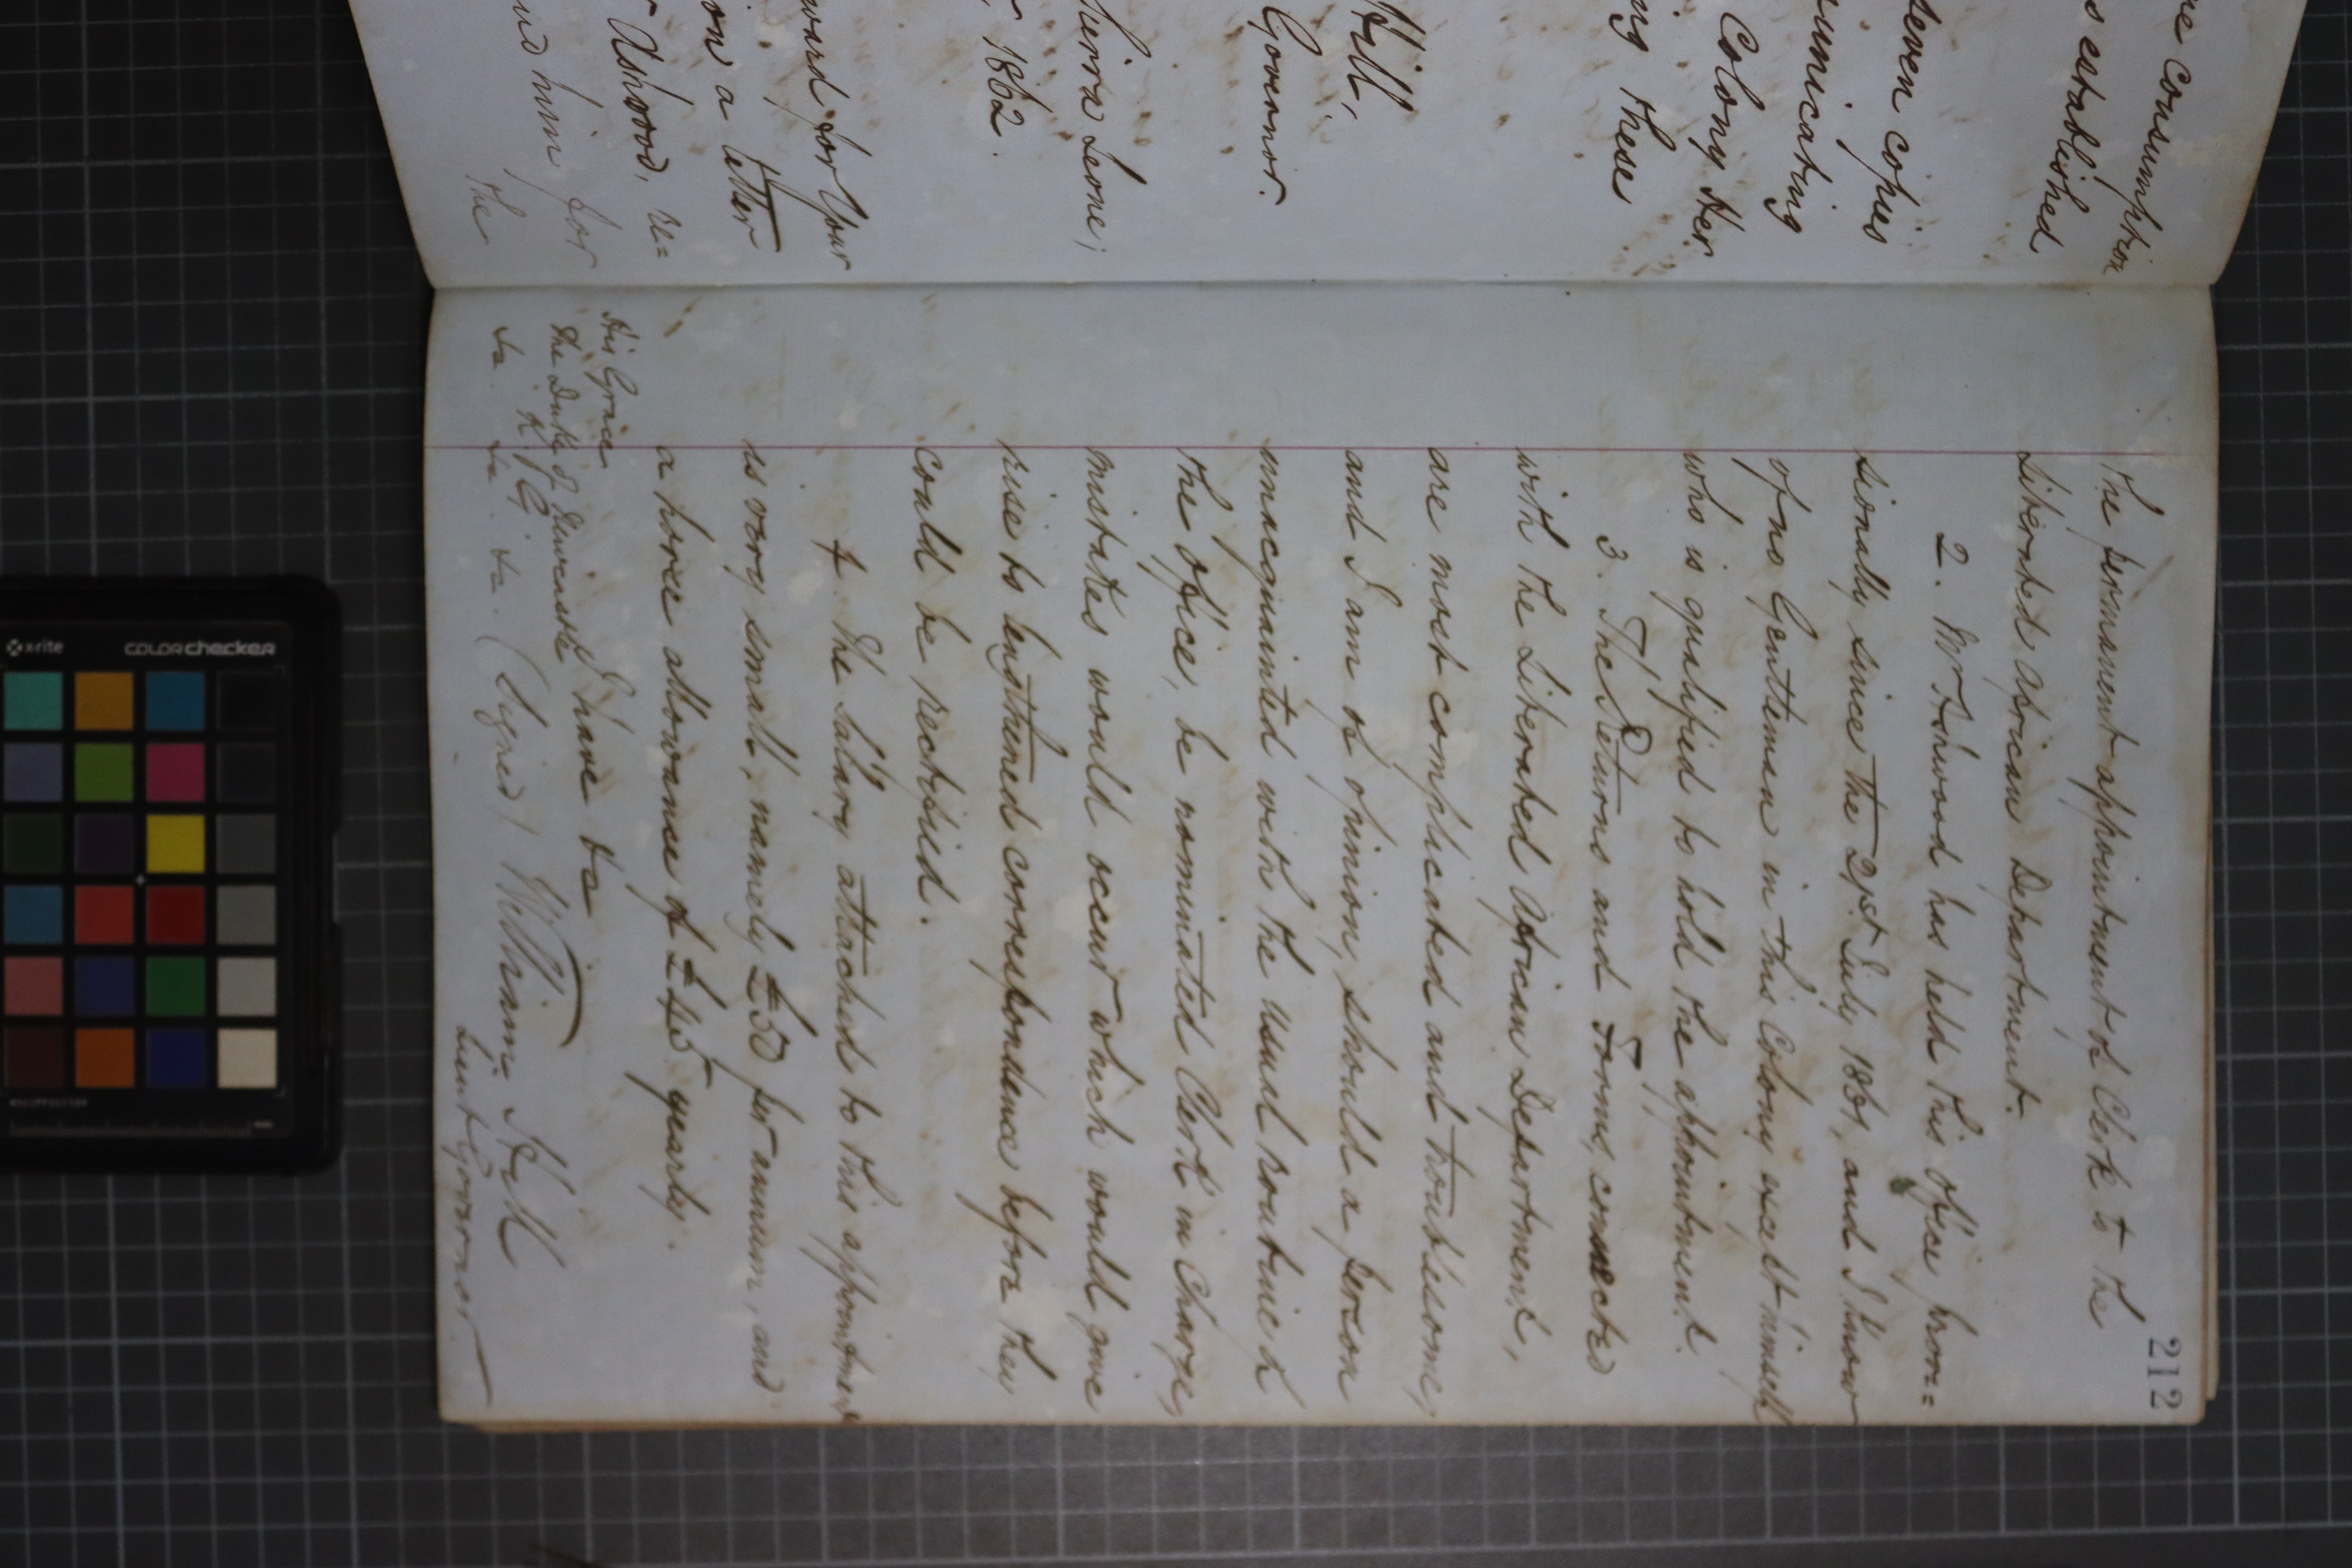 re consumption
s established
seven copies
municating
Colony Her
ng these
Hill,
Governor.
Sierra Leone,
1862.
ward for Your
on a letter
r Ashwood, re=
und him for
the
212
the permanent appointment of Clerk to the
Liberated African Department.
2. Mr Ashwood has held this Office provi=
sionally since the 21st July 1861, and I know
of no Gentleman in this Colony except himself
who is qualified to hold the appointment.
3. The Returns and Forms, connected
with the Liberated African Department,
are most complicated and troublesome,
and I am of opinion, should a person
unacquainted with the usual routine of
the Office, be nominated Clerk in Charge,
mistakes would occur which would give
rise to lengthened correspondence before they
could be rectified.
4. The Salary attached to this appointment
is very small, namely £50 per annum, and
a horse allowance of £45 yearly.
I have &c
(Signed) William Hill
Lieut Governor.
His Grace
The Duke of Newcastle
K. G.
&c. &c. &c.
x-rite
colorchecker